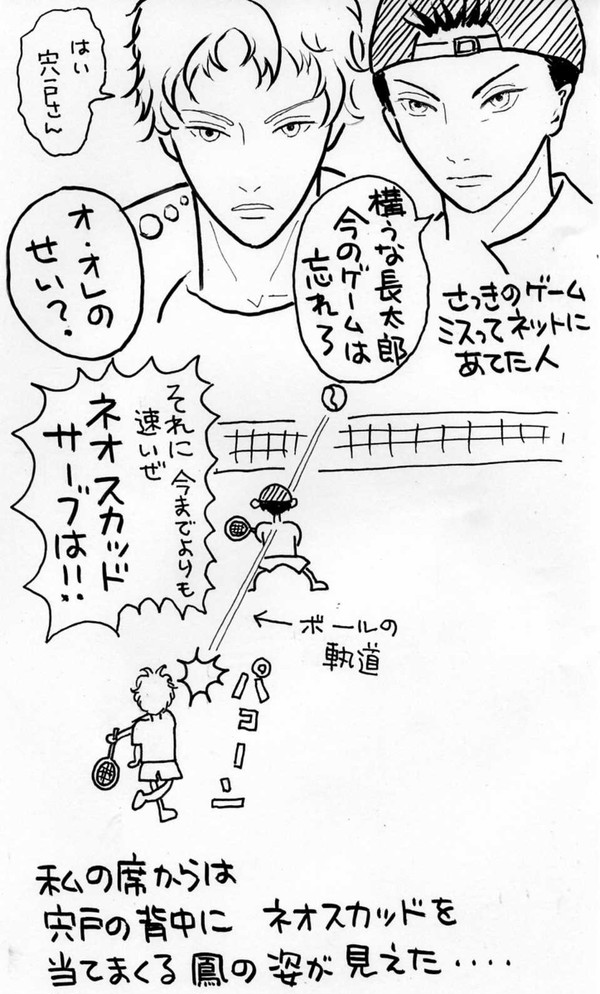 構うな長太郎
今のゲームは
忘れろ
はい
宍戸さん
さっきのゲーム
ミスってネットに
あてた人
オ・オレの
せい?
それに今までよりも
速いぜ
ネオスカッド
サーブは!!
←ボールの
軌道
パコーン
私の席からは
宍戸の背中に ネオスカッドを
当てまくる鳳の姿が見えた・・・・